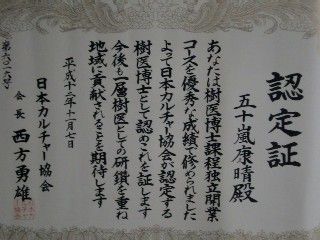 認定証
五十嵐康晴殿
あなたは樹医博士課程独立開業
コースを優秀な成績で修められました
よって日本カルチャー協会が認定する
樹医博士として認めこれを証します
今後も一層樹医としての研鑽を重ね
地域に貢献されることを期待します
平成十二年十一月七日
日本カルチャー協会
会長 西方勇雄